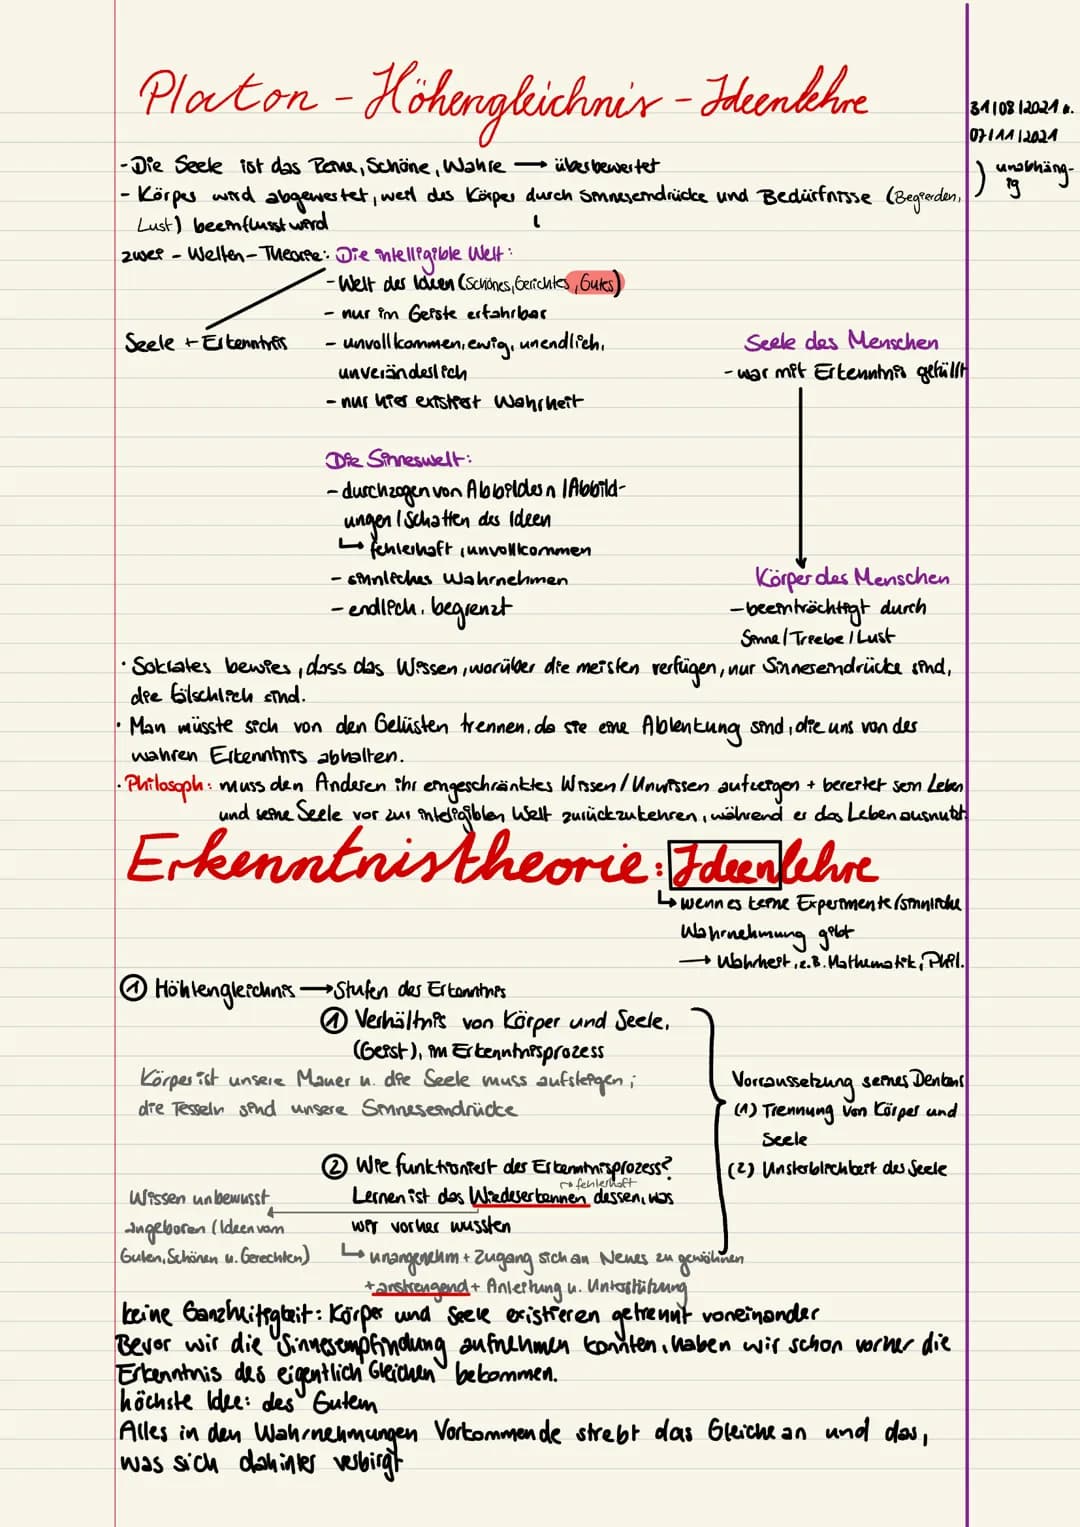 Platon - Höhengleichnis - Ideenlehre
31|08|2021 u.
07|11|2021
- Die Seele ist das Reine, Schöne, Wahre → überbewertet
) unabhäng-
ig
- Körper wird abgewertet, weil der Körper durch Sinneseindrücke und Bedürfnisse (Begierden,
Lust) beeinflusst wird
zwei - Welten - Theorie: Die intelligible Welt:
- Welt der Ideen (Schönes, Gerechtes, Gutes)
- nur im Geiste erfahrbar
Seele + Erkenntnis
- unvollkommen, ewig, unendlich,
unveränderlich
- nur hier existiert Wahrheit
Seele des Menschen
- war mit Erkenntnis gefüllt
Die Sinneswelt:
- durchzogen von Abbildern / Abbild-
ungen / Schatten der Ideen
↳ fehlerhaft, unvollkommen
- sinnliches Wahrnehmen
- endlich, begrenzt
Körper des Menschen
- beeinträchtigt durch
Sinne / Triebe / Lust
· Sokrates bewies, dass das Wissen, worüber die meisten verfügen, nur Sinneseindrücke sind,
die fälschlich sind.
· Man müsste sich von den Gelüsten trennen, da sie eine Ablenkung sind, die uns von der
wahren Erkenntnis abhalten.
· Philosoph: muss den Anderen ihr eingeschränktes Wissen / Unwissen aufzeigen + bereitet sein Leben
und seine Seele vor zur intelligiblen Welt zurückzukehren, während er das Leben ausnutzt
Erkenntnistheorie: Ideenlehre
↳ wenn es keine Experimente / sinnliche
Wahrnehmung gibt
→ Wahrheit, z.B. Mathematik, Phil.
① Höhlengleichnis → Stufen der Erkenntnis
① Verhältnis von Körper und Seele,
(Geist), im Erkenntnisprozess
Körper ist unsere Mauer u. die Seele muss aufsteigen;
die Fesseln sind unsere Sinneseindrücke
Vorraussetzung seines Denkens
(1) Trennung von Körper und
Seele
(2) Unsterblichkeit der Seele
② Wie funktioniert der Erkenntnisprozess?
→ fehlerhaft
Lernen ist das Wiedererkennen dessen, was
wir vorher wussten
Wissen unbewusst
angeboren (Ideen vom
Guten, Schönen u. Gerechten)
↳ unangenehm + Zugang sich an Neues zu gewöhnen
+ anstrengend + Anleitung u. Unterstützung
keine Ganzheitigkeit: Körper und Seele existieren getrennt voneinander
Bevor wir die Sinnesempfindung aufnehmen konnten, haben wir schon vorher die
Erkenntnis des eigentlich Gleichen bekommen.
höchste Idee: des Gutem
Alles in den Wahrnehmungen Vorkommende strebt das Gleiche an und das,
was sich dahinter verbirgt